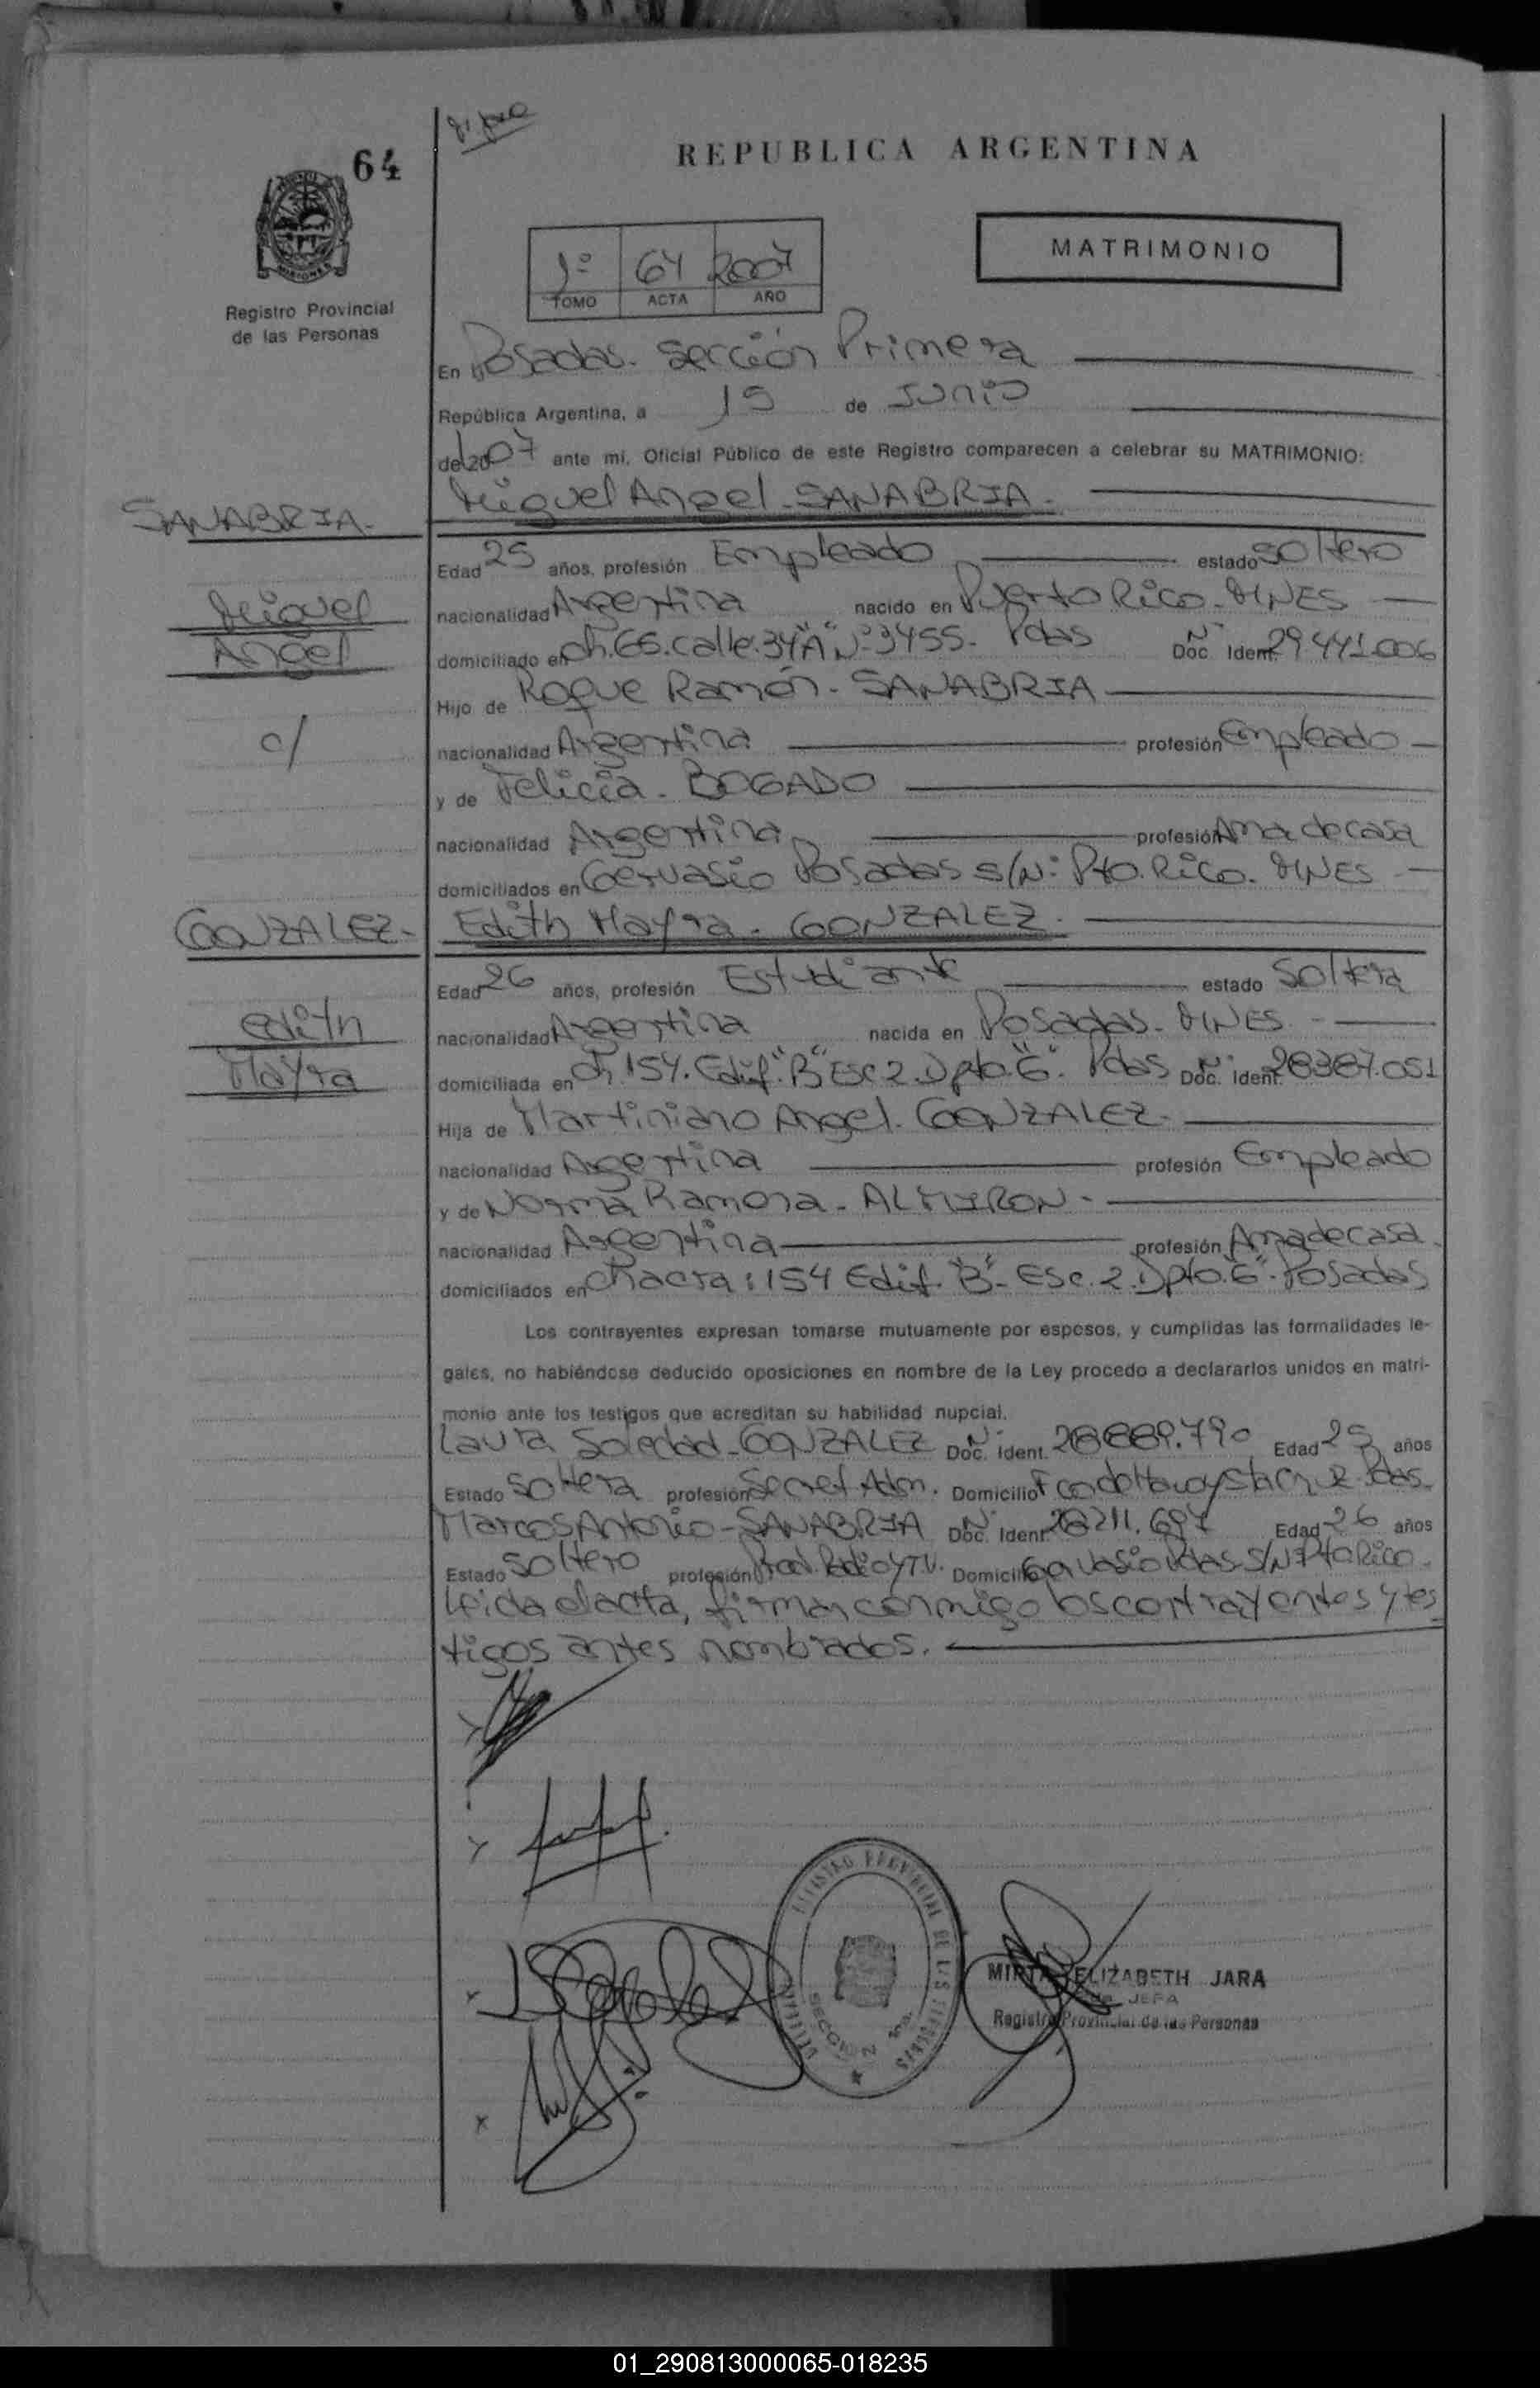 64
REPUBLICA ARGENTINA
MATRIMONIO
1º 64 2007
TOMO ACTA AÑO
Registro Provincial
de las Personas
En Posadas. Sección Primera
República Argentina, a 15 de Junio
del 2007 ante mi, Oficial Público de este Registro comparecen a celebrar su MATRIMONIO:
SANABRIA.
Miguel Angel. SANABRIA.
Edad 25 años, profesión Empleado estado soltero
Miguel
nacionalidad Argentina nacido en Puerto Rico. MNES
Angel
domiciliado en ch. 66. calle. 34"A" Nº 3455. Pdas Doc. Ident. Nº 29441.006
Hijo de Roque Ramón. SANABRIA
c/
nacionalidad Argentina profesión Empleado
y de Felicia. BOGADO
nacionalidad Argentina profesión Ama de casa
domiciliados en Gervasio Posadas s/Nº Pto. Rico. MNES
GONZALEZ.
Edith Mayra. GONZALEZ.
Edad 26 años, profesión Estudiante estado Soltera
Edith
nacionalidad Argentina nacida en Posadas. MNES.
Mayra
domiciliada en ch 154. Edif. "B" Esc 2. Dpto. "6". Pdas Doc. Ident. Nº 28387.051
Hija de Martiniano Angel. GONZALEZ.
nacionalidad Argentina profesión Empleado
y de Norma Ramona. ALMIRON.
nacionalidad Argentina profesión Ama de casa.
domiciliados en chacra: 154 Edif. "B". Esc. 2. Dpto. "6". Posadas
Los contrayentes expresan tomarse mutuamente por esposos, y cumplidas las formalidades le-
gales, no habiéndose deducido oposiciones en nombre de la Ley procedo a declararlos unidos en matri-
monio ante los testigos que acreditan su habilidad nupcial.
Laura Soledad. GONZALEZ Doc. Ident. Nº Edad 25 años
Estado Soltera profesión Secret. Adm. Domicilio Pdas.
Marcos Antonio - SANABRIA Doc. Ident. Nº 28211.697 Edad 26 años
Estado Soltero profesión Prod. Radio y TV. Domicilio Gervasio Pdas S/Nº Pto Rico.
Leida el acta, firman conmigo los contrayentes y tes
tigos antes nombrados.
REGISTRO PROVINCIAL DE LAS PERSONAS
MIRTA ELIZABETH JARA
JEFA
Registro Provincial de las Personas
01_290813000065-018235